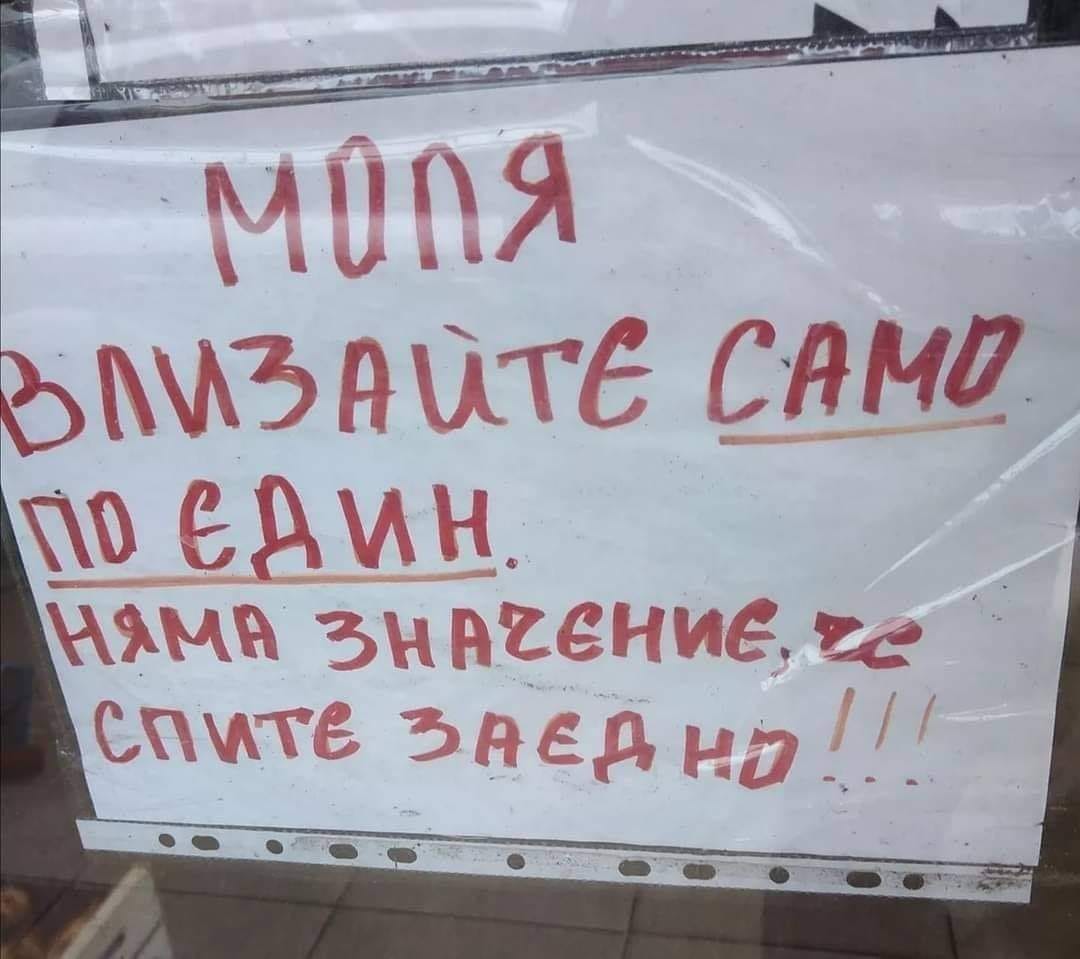 МОЛЯ
ВЛИЗАЙТЕ САМО
ПО ЕДИН.
НЯМА ЗНАЧЕНИЕ, ЧЕ
СПИТЕ ЗАЕДНО!!!